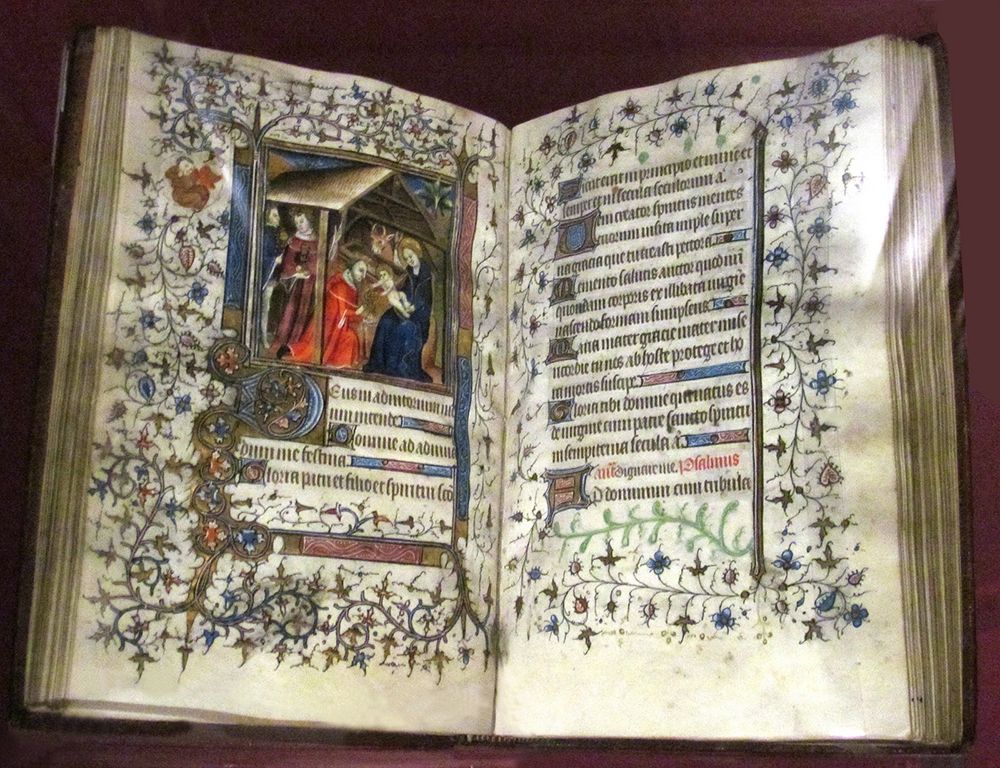 Deus in adiutorium me
um intende
Domine ad adiuuā
dum me festina
Gloria patri et filio et spiritui sc̄o
Sicut erat in principio et nunc et
semper et in secula seculorum a.
Veni creator spiritus mentes
tuorum visita imple super
na gracia que tu creasti pectora
Memento salutis auctor quod nr̄i
quondam corporis ex illibata virgīe
nascendo formam sumpseris
Maria mater gracie mater mise
ricordie tu nos ab hoste protege et ho
ra mortis suscipe
Gloria tibi domine qui natus es
de virgine cum patre sancto spiritu
in sempiterna secula a.
añ Dignare me. Psalmus
Ad dominum cum tribula